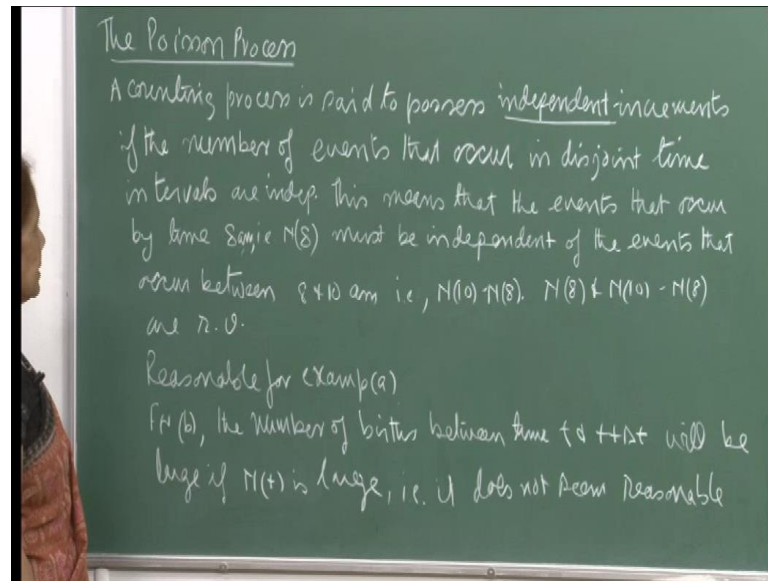 The Poisson Process
A counting process is said to possess independent increments
if the number of events that occur in disjoint time
intervals are indep. This means that the events that occur
by time 8am, ie N(8) must be independent of the events that
occur between 8 & 10 am i.e, N(10)-N(8). N(8) & N(10) - N(8)
are r.v.
Reasonable for examp(a)
For (b), the number of births between time t & t+Δt will be
large if N(t) is large, i.e. it does not seem reasonable